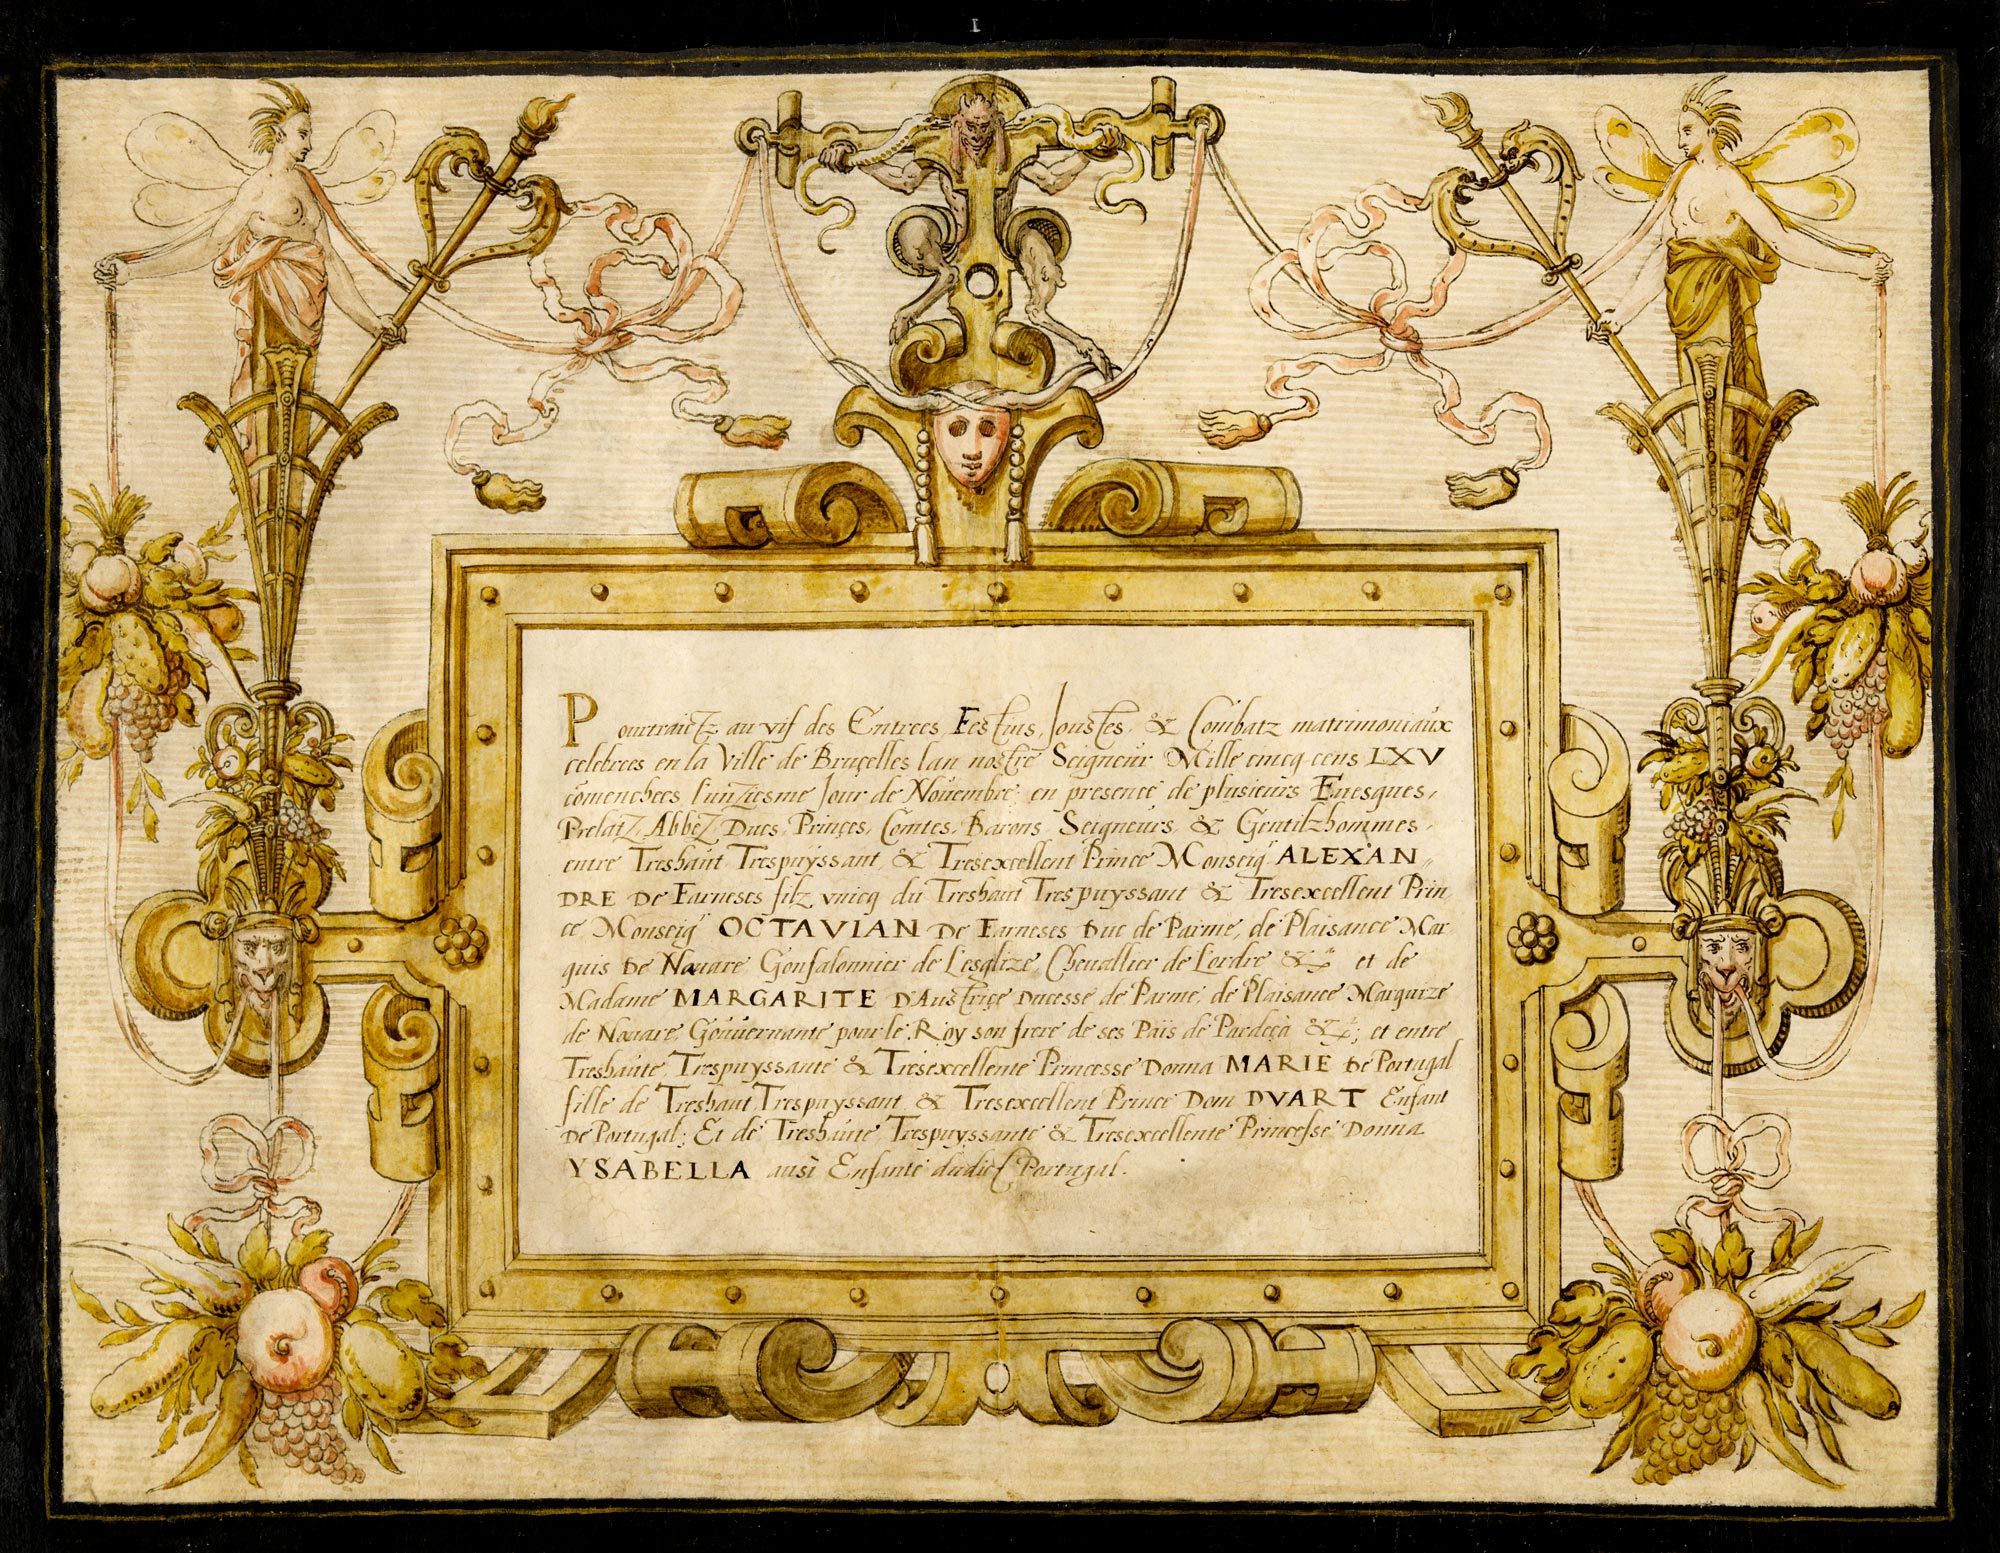 1
Pourtraictz au vif des Entrees, Festins, Joustes, & Combatz matrimoniaux
celebrees en la Ville de Bruçelles lan nostre Seigneur Mille cincq cens LXV
comenchees l'unziesme Jour de Novembre; en presence de plusieurs Evesques,
Prelatz, Abbez, Ducs, Prinçes, Comtes, Barons, Seigneurs, & Gentilzhommes,
entre Treshault Trespuyssant, & Tresexcellent Prince Monseigr ALEXAN=
DRE De Farneses filz vnicq du Treshaut Trespuyssant & Tresexcellent Prin,
ce Monseigr OCTAVIAN De Farneses Duc de Parme, de Plaisance Mar
quis De Novare Gonfalonnier de L'esglize, Chevallier de Lordre &ra et de
Madame MARGARITE D'Austriçe Ducesse de Parme, de Plaisance Marquize
de Novare, Gouvernante pour le Roy son frere de ses Païs de Pardeçà &ra; et entre
Treshaute Trespuyssante & Tresexcellente Princesse Donna MARIE De Portugal
fille de Treshaut Trespuyssant & Tresexcellent Prince Dom DVART Enfant
De Portugal; Et de Treshaute Trespuyssante & Tresexcellente Princesse Donna
YSABELLA ausi Enfante dudict Portugal.